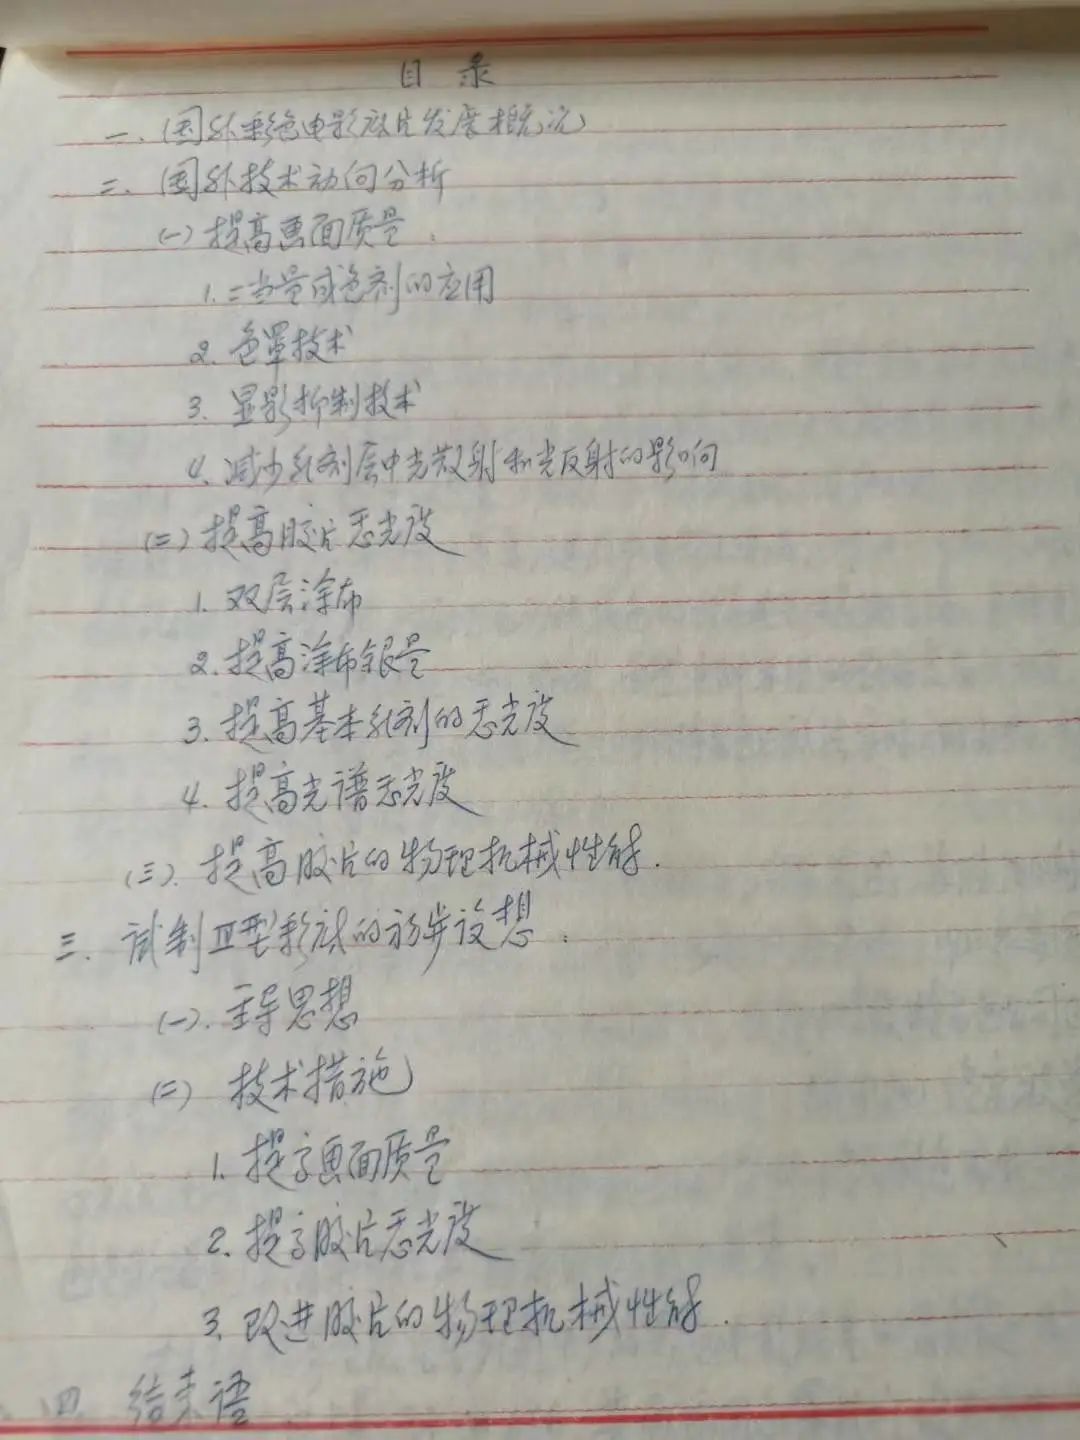 目 录
一、国外彩色电影底片发展概况
二、国外技术动向分析
(一) 提高画面质量.
1. 二当量成色剂的应用
2. 色罩技术
3. 显影抑制技术
4. 减少乳剂层中光散射和光反射的影响
(二) 提高胶片感光度
1. 双层涂布
2. 提高涂布银量
3. 提高基本乳剂的感光度
4. 提高光谱感光度
(三). 提高胶片的物理机械性能.
三、试制Ⅲ型彩底的初步设想:
(一). 主导思想
(二) 技术措施
1. 提高画面质量
2. 提高胶片感光度
3. 改进胶片的物理机械性能.
四 结束语